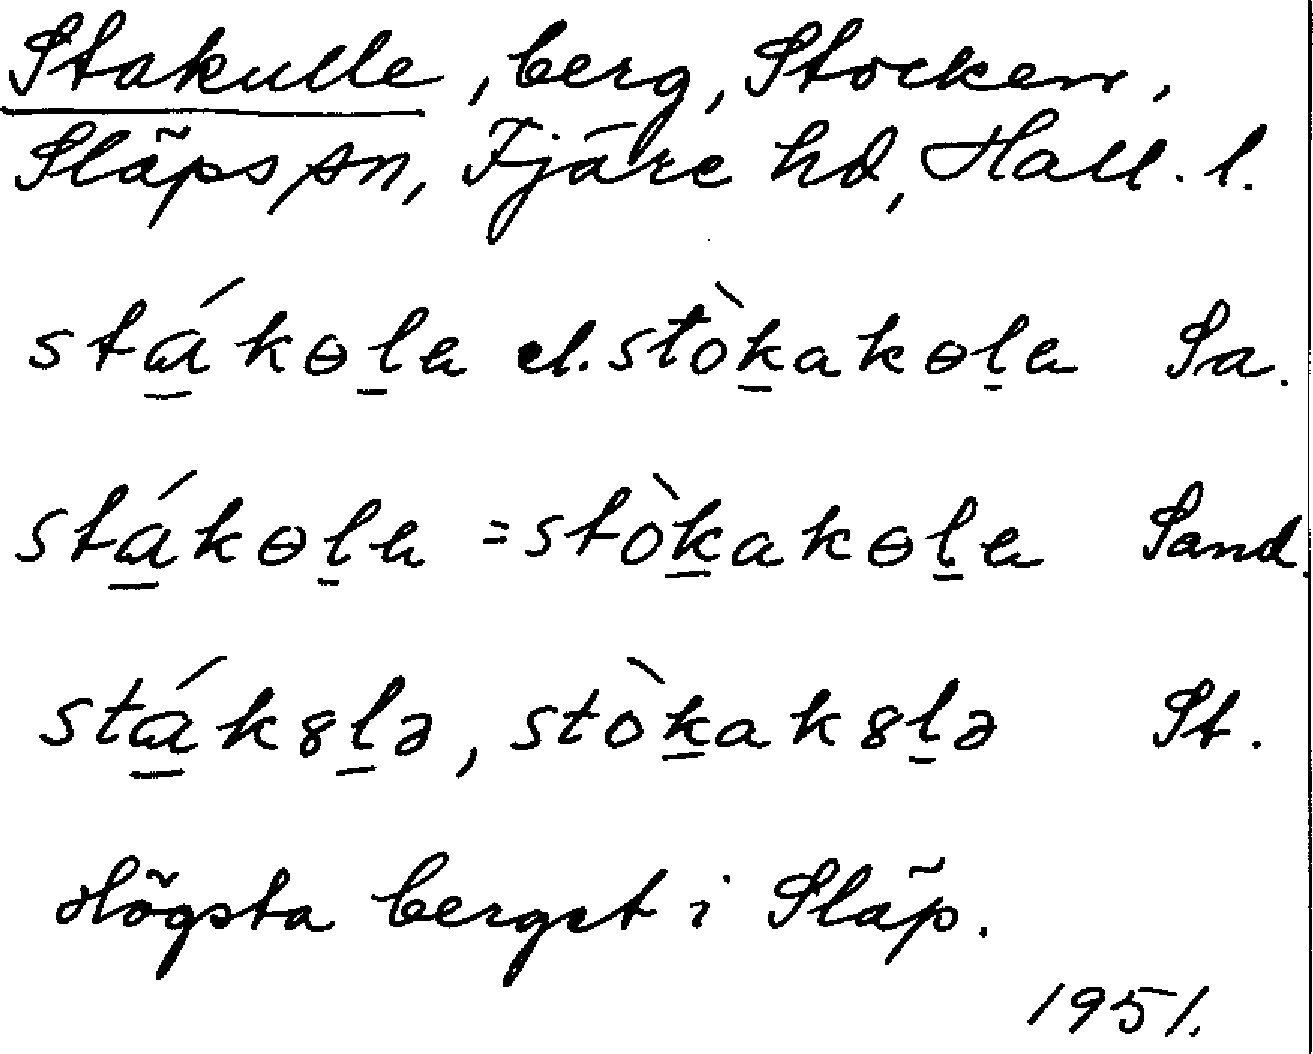 Stakulle, berg, Stocken,
Släps sn, Fjäre hd, Hall. l.
stákɵla el. stòkakɵla Sa.
stákɵla = stòkakɵla Sand.
sták8lə, stòkak8lə St.
Högsta berget i Släp.
1951.